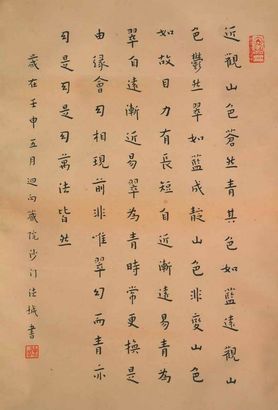 近觀山色蒼然青其色如藍遠觀山
色鬱然翠如藍成靛山色非變山色
如故目力有長短自近漸遠易青為
翠自遠漸近易翠為青時常更換是
由緣會幻相現前非唯翠幻而青亦
幻是幻是幻萬法皆然
歲在壬申五月迴向藏院沙门法城書